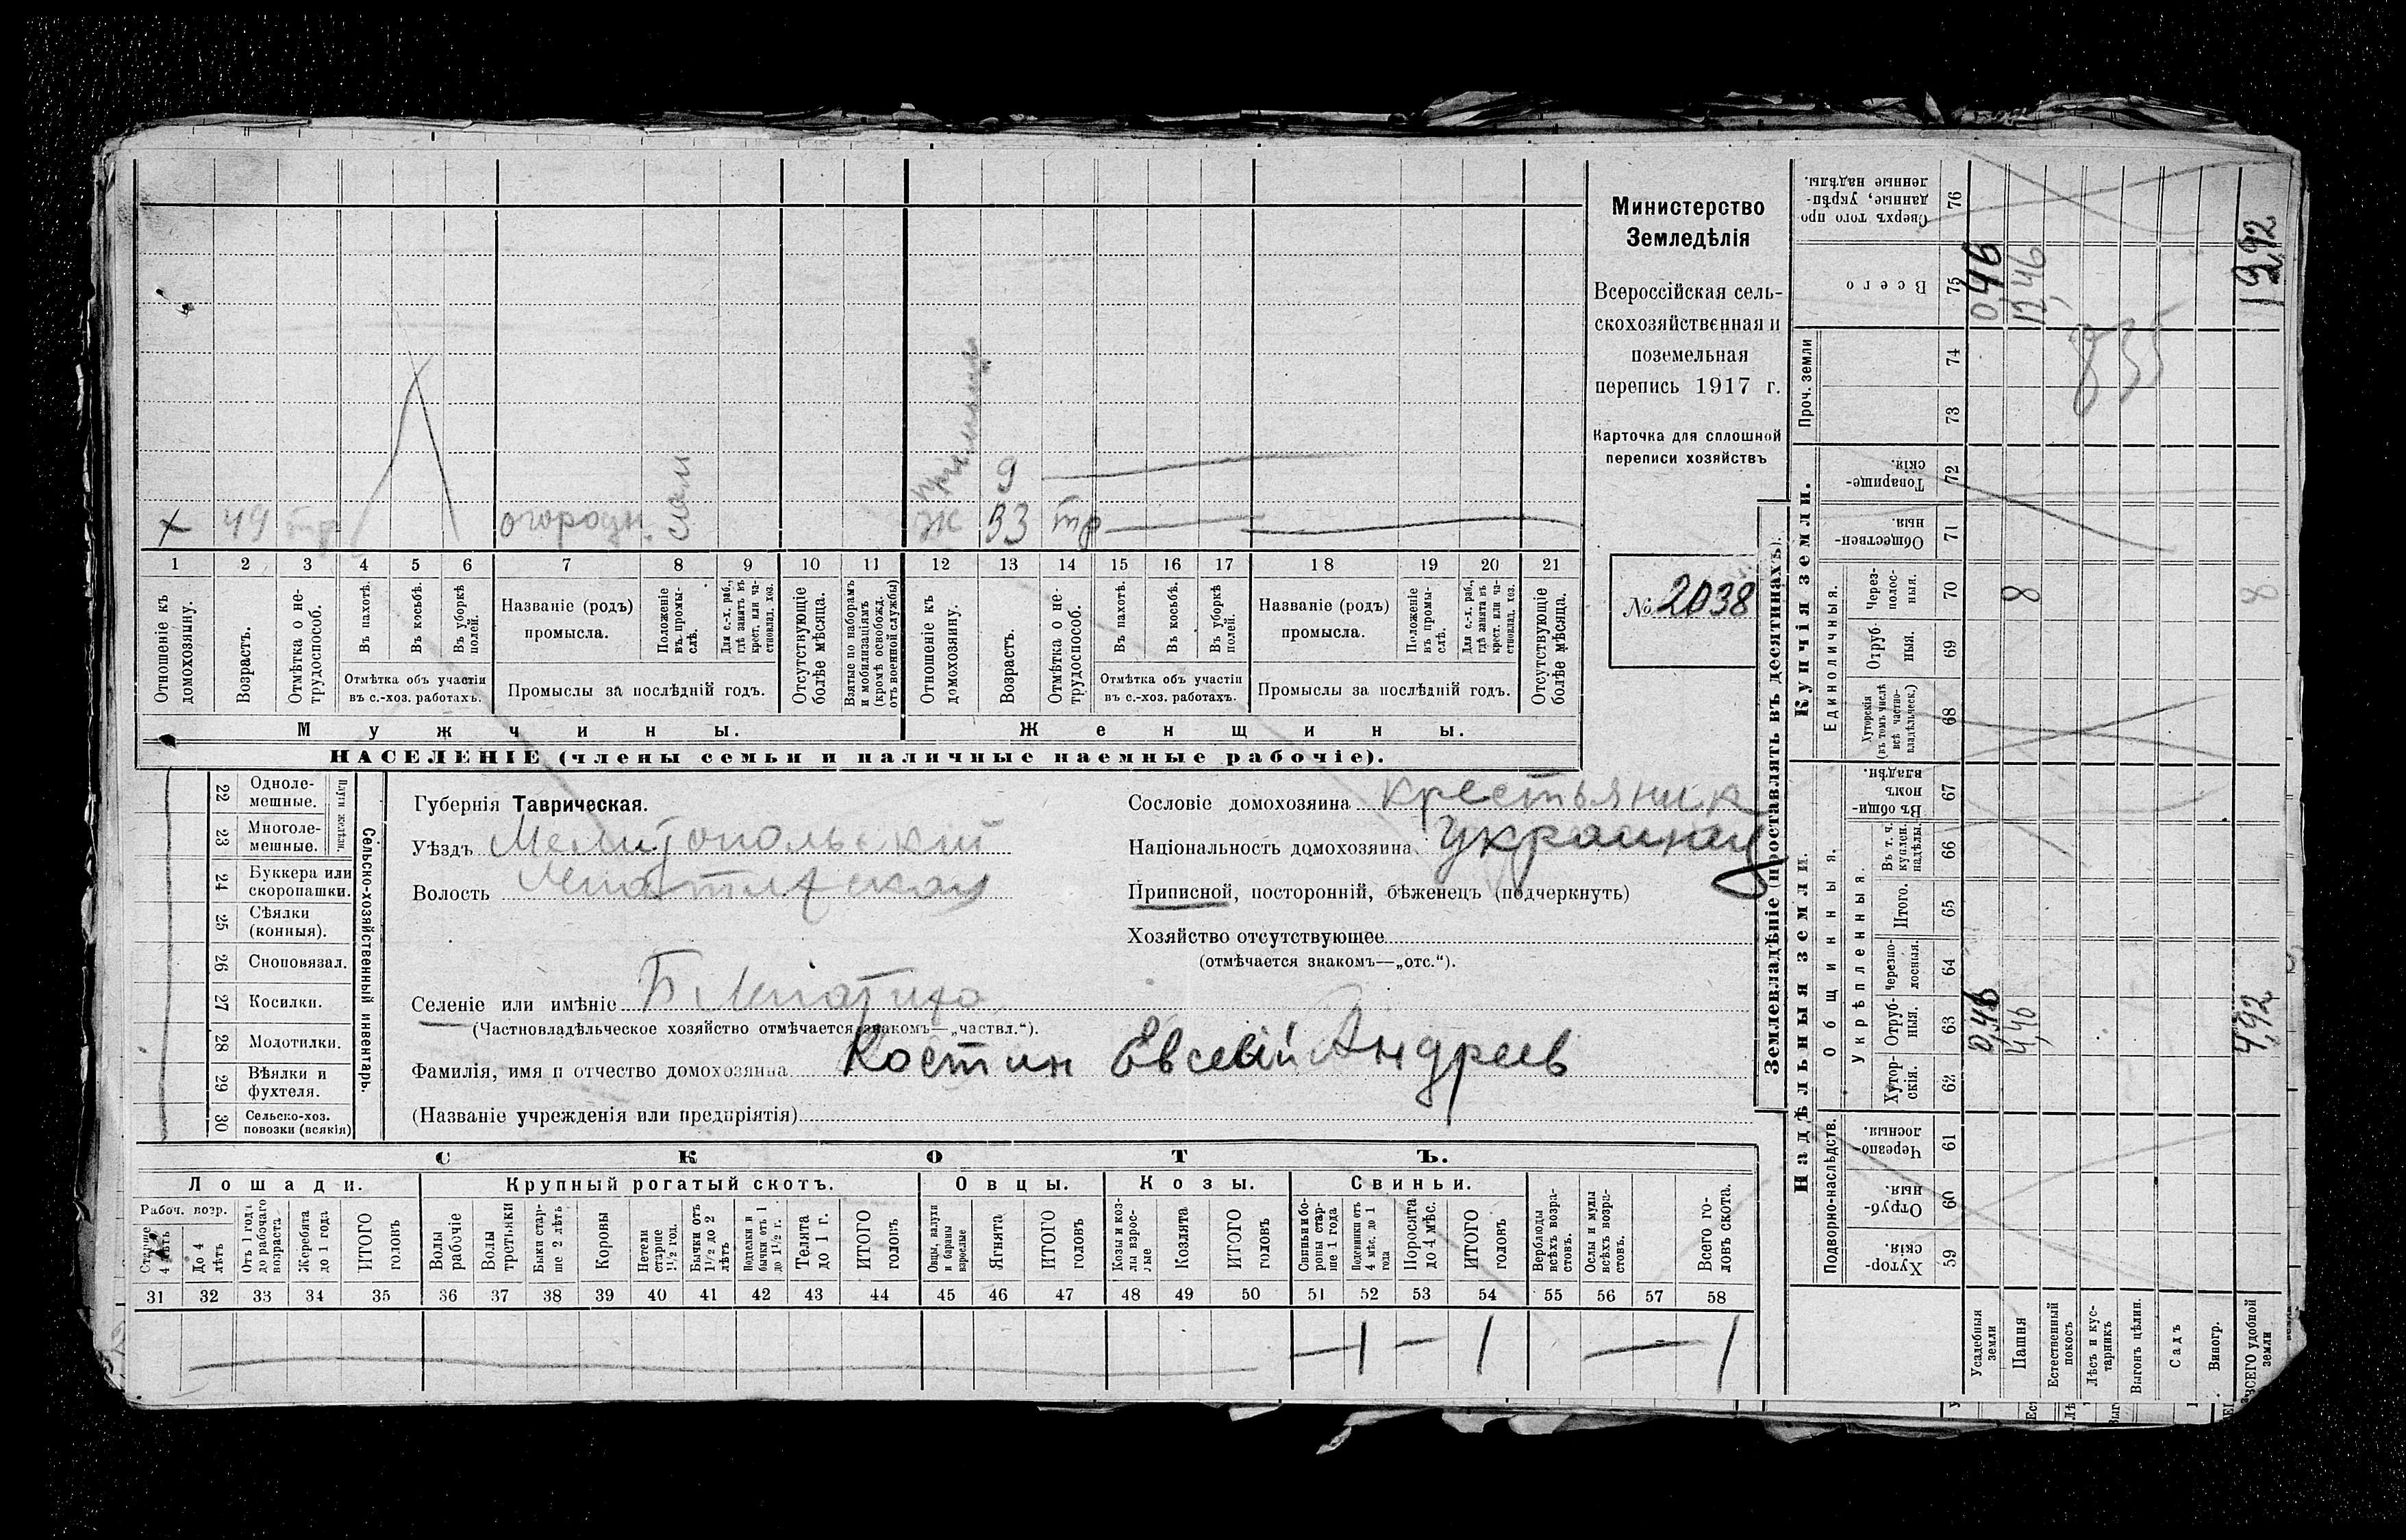 Министерство
Земледѣлія
Всероссійская сель-
скохозяйственная и
поземельная
перепись 1917 г.
Карточка для сплошной
переписи хозяйствъ
№ 2038
9
х 49 тр огородн. Ж 33 тр
1 2 3 4 5 6 7 8 9 10 11 12 13 14 15 16 17 18 19 20 21
Отношеніе къ домохозяину.
Возрастъ.
Отмѣтка о не-трудоспособ.
Въ пахотѣ.
Въ косьбѣ.
Въ уборкѣ полей.
Отмѣтка объ участіи
въ с.-хоз. работахъ.
Названіе (родъ)
промысла.
Положеніе въ промы-слѣ.
Для с.-х. раб., гдѣ занятъ въ крест. или ча-стновлад. хоз.
Промыслы за послѣдній годъ.
Отсутствующіе болѣе мѣсяца.
Взятые по наборамъ и мобилизаціямъ (кромѣ освобожд. отъ военной службы)
Отношеніе къ домохозяину.
Возрастъ.
Отмѣтка о не-трудоспособ.
Въ пахотѣ.
Въ косьбѣ.
Въ уборкѣ полей.
Отмѣтка объ участіи
въ с.-хоз. работахъ.
Названіе (родъ)
промысла.
Положеніе въ промы-слѣ.
Для с.-х. раб., гдѣ занята въ крест. или ча-стновлад. хоз.
Промыслы за послѣдній годъ.
Отсутствующіе болѣе мѣсяца.
Мужчины. Женщины.
НАСЕЛЕНІЕ (члены семьи и наличные наемные рабочіе).
Сельско-хозяйственный инвентарь.
Плуги желѣзн.
22 Одноле-мешные.
23 Многоле-мешные.
24 Буккера или скоропашки.
25 Сѣялки (конныя).
26 Сноповязал.
27 Косилки.
28 Молотилки.
29 Вѣялки и фухтеля.
30 Сельско-хоз. повозки (всякія)
Губернія Таврическая.
Уѣздъ Мелитопольскій
Волость Лепатихская
Селеніе или имѣніе Б Лепатиха
(Частновладѣльческое хозяйство отмѣчается знакомъ—„частвл.“).
Фамилія, имя и отчество домохозяина Костин Евсевій Андреев
(Названіе учрежденія или предпріятія)
Сословіе домохозяина крестьяник
Національность домохозяина
Приписной, посторонній, бѣженецъ (подчеркнуть)
Хозяйство отсутствующее
(отмѣчается знакомъ—„отс.“).
СКОТЪ.
Лошади. Крупный рогатый скотъ. Овцы. Козы. Свиньи.
Рабоч. возр.
Старше 4 лѣтъ
До 4 лѣтъ
Отъ 1 года до рабочаго возраста
Жеребята до 1 года
ИТОГО головъ
Волы рабочіе
Волы третьяки
Быки стар-ше 2 лѣтъ
Коровы
Нетели старше 1½ год.
Бычки отъ 1½ до 2 лѣтъ
Подтелки и бычки отъ 1 до 1½ г.
Телята до 1 г.
ИТОГО головъ
Овцы, валухи и бараны взрослые
Ягнята
ИТОГО головъ
Козы и коз-лы взрос-лые
Козлята
ИТОГО головъ
Свиньи и бо-ровы стар-ше 1 года
Подсвинки отъ 4 мѣс. до 1 года
Поросята до 4 мѣс.
ИТОГО головъ
Верблюды всѣхъ возра-стовъ.
Ослы и мулы всѣхъ возра-стовъ.
Всего го-ловъ скота.
31 32 33 34 35 36 37 38 39 40 41 42 43 44 45 46 47 48 49 50 51 52 53 54 55 56 57 58
— 1 — 1 — 1
Землевладѣніе (проставлять въ десятинахъ).
Надѣльныя земли. Купчія земли. Проч. земли
Подворно-наслѣдств. Общинныя. Укрѣпленныя. Единоличныя.
Хутор-скія. 59
Отруб-ныя. 60
Черезпо-лосныя. 61
Хутор-скія. 62
Отруб-ныя. 63
Черезпо-лосныя. 64
Итого. 65
Въ т. ч. куплен. надѣлы. 66
Въ общин-номъ владѣн. 67
Хуторскія (въ томъ числѣ всѣ частно-владѣльческ.) 68
Отруб-ныя. 69
Через-полос-ныя. 70
Обществен-ныя. 71
Товарище-скія. 72
73
74
Всего 75
Сверхъ того про-данные, укрѣп-ленные надѣлы. 76
Усадебныя земли 0,46 0,46
Пашня 4,46 8 12,46
Естественный покосъ
Лѣсъ и кус-тарникъ
Выгонъ цѣлин.
Садъ
Виногр.
ВСЕГО удобной земли 4,92 8
835